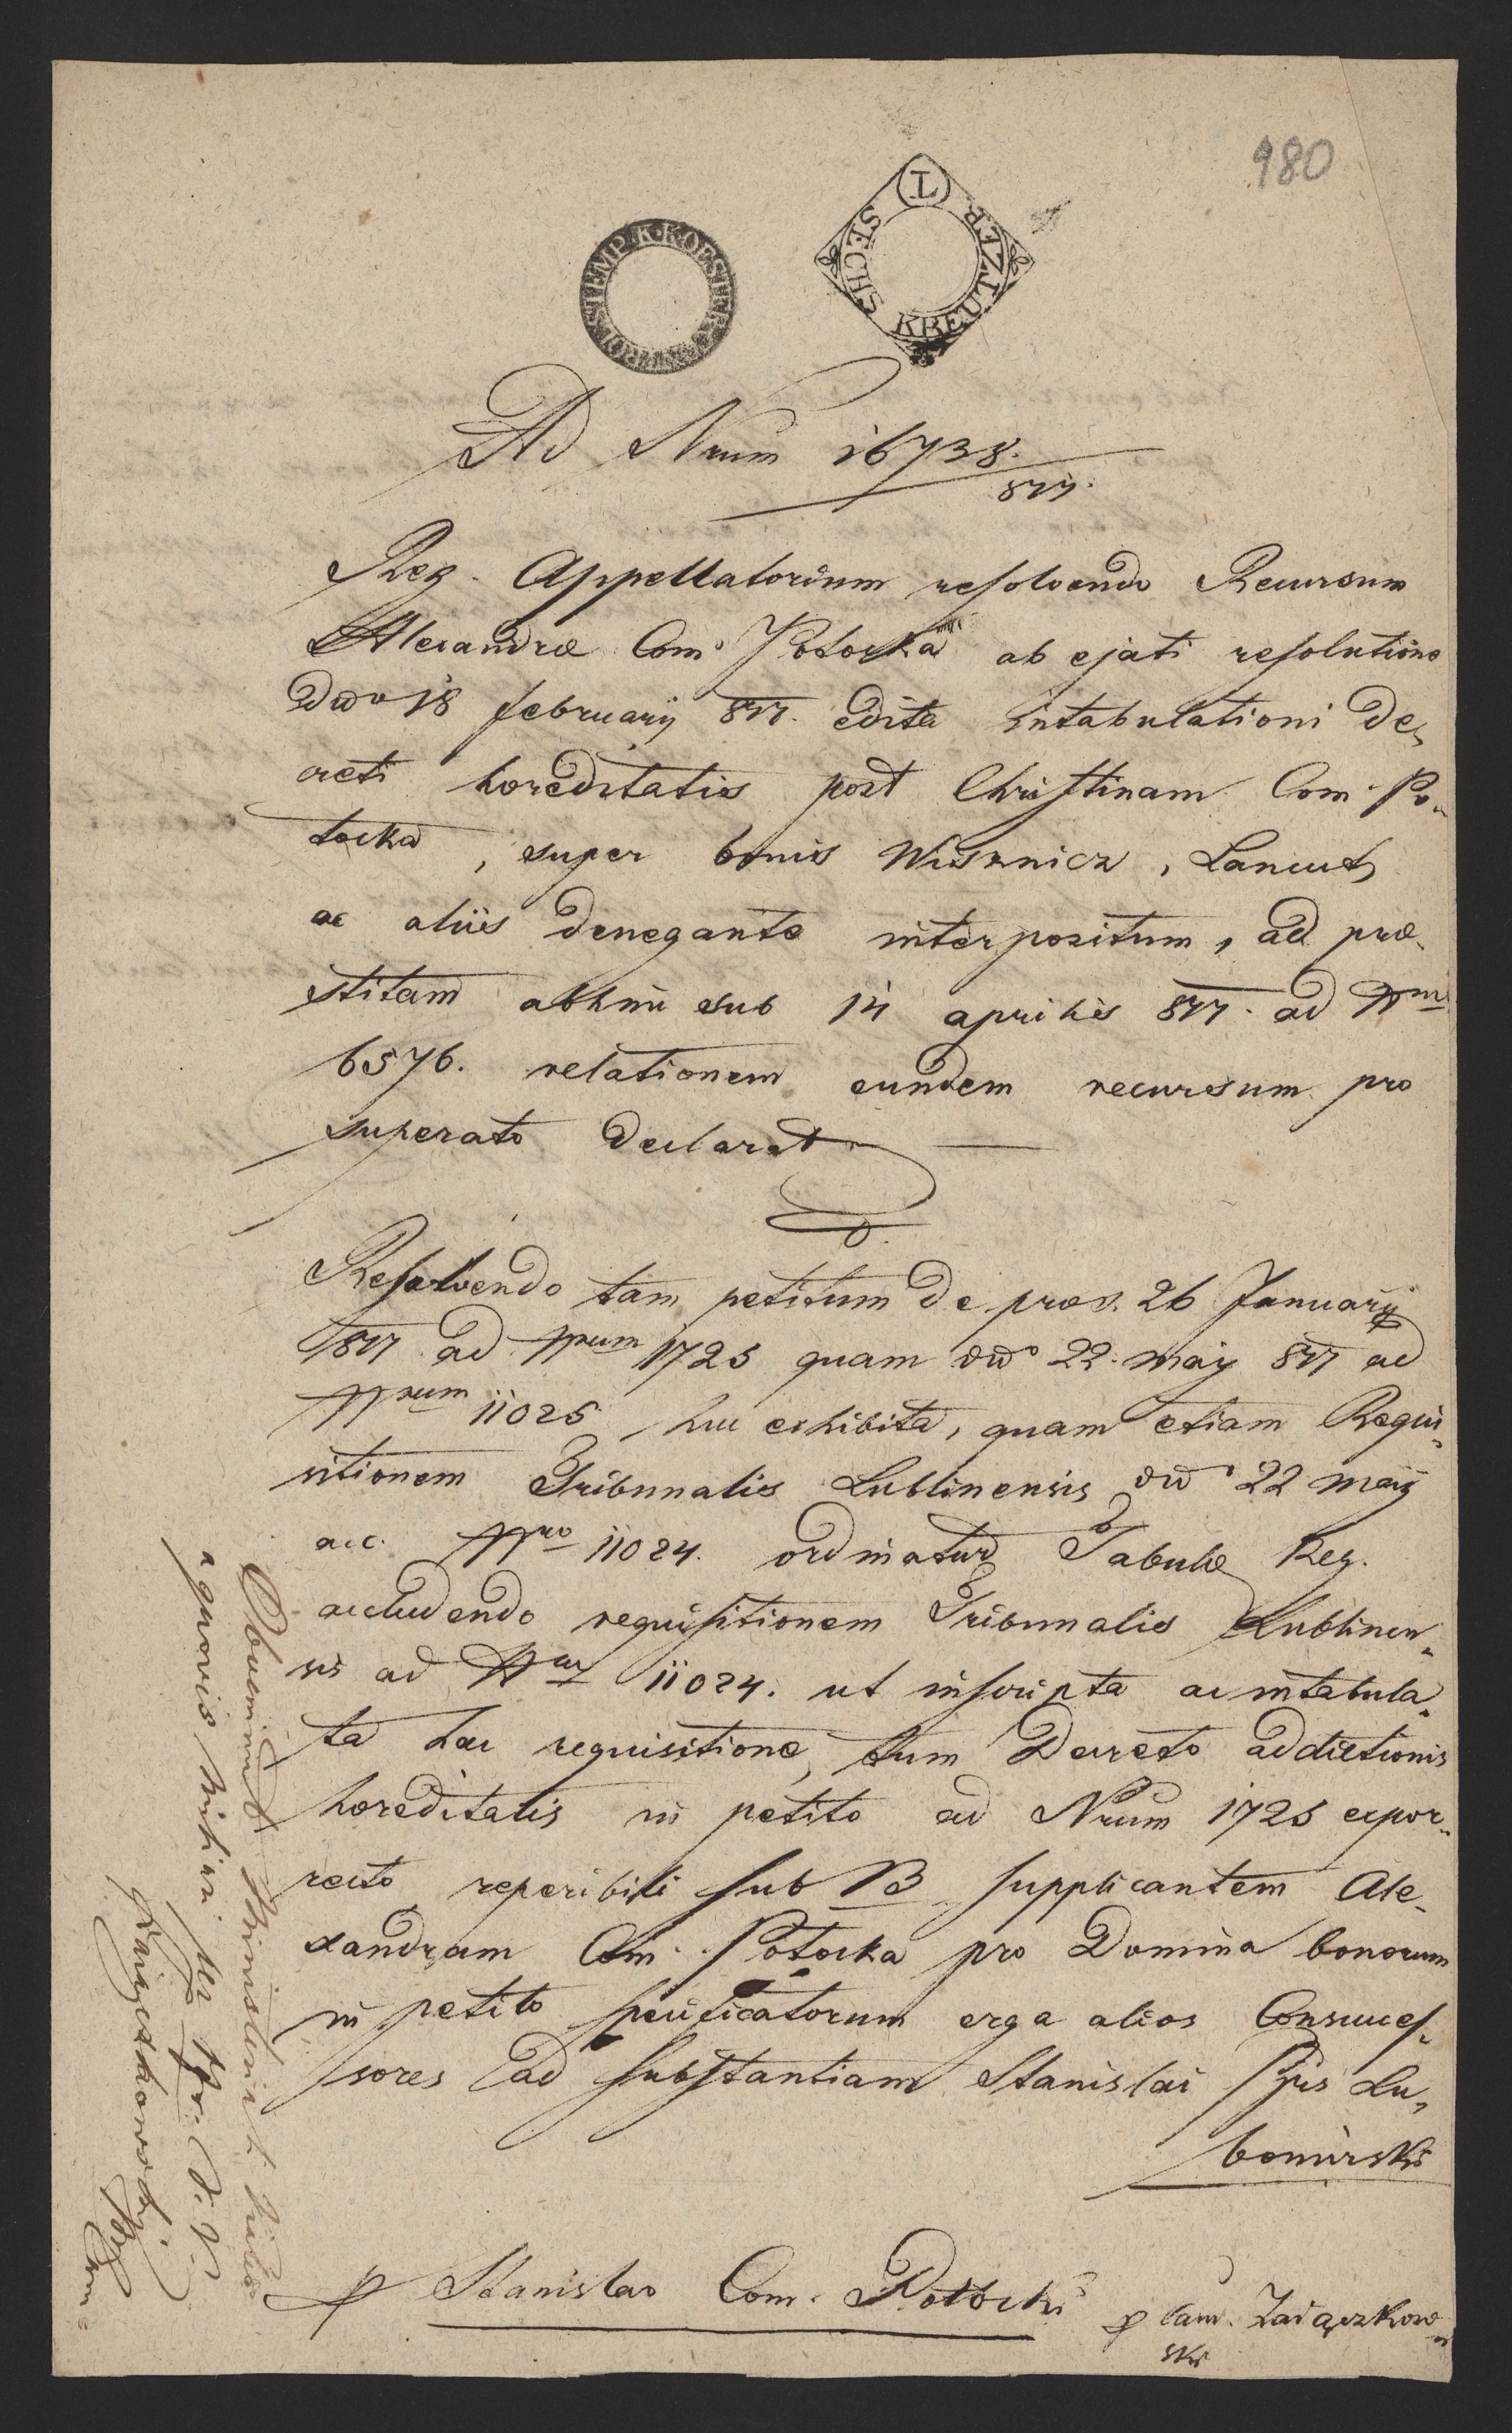 980
STEMP. K. KOESTER
(L) SECHS KREUTZER
Ad Nrum 16738.
817.
Reg. Appellatorium resolvendo Recursum
Alexandrae Com. Potocka ab ejati resolutione
ddto 18 february 817. edita intabulationi De,
creti hoereditatis post Christinam Com. Po„
tocka, super bonis Wisznicz, Lancut
ac aliis denegante interpositum, ad prae„
stitam abhinc sub 14 aprilis 817. ad Nrm
6576. relationem eundem recursum pro
superato declarat
Resolvendo tam petitum de praes. 26 Januarij
1817 ad Nrum 1725 quam ddto 22. maij 817 ad
Nrum 11025 huc exhibita, quam etiam Requi„
sitionem Tribunalis Lublinensis ddto 22 maij
a.c. Nro 11024. ordinatur Tabulae Reg.
accludendo requisitionem Tribunalis Lublinen„
sis ad Nrum 11024. ut inscripta ac intabula„
ta hac requisitione, tum Decreto addictionis
hoereditatis in petito ad Nrum 1725 expor„
recto reperibili sub B supplicantem Ale„
xandram Com. Potocka pro Domina bonorum
in petito specificatorum erga alios Consucces„
sores ad substantiam Stanislai Pjis Lu„
bomirski
p Stanislao Com. Potocki
p law. Zaiączkow„
ski
a quovis